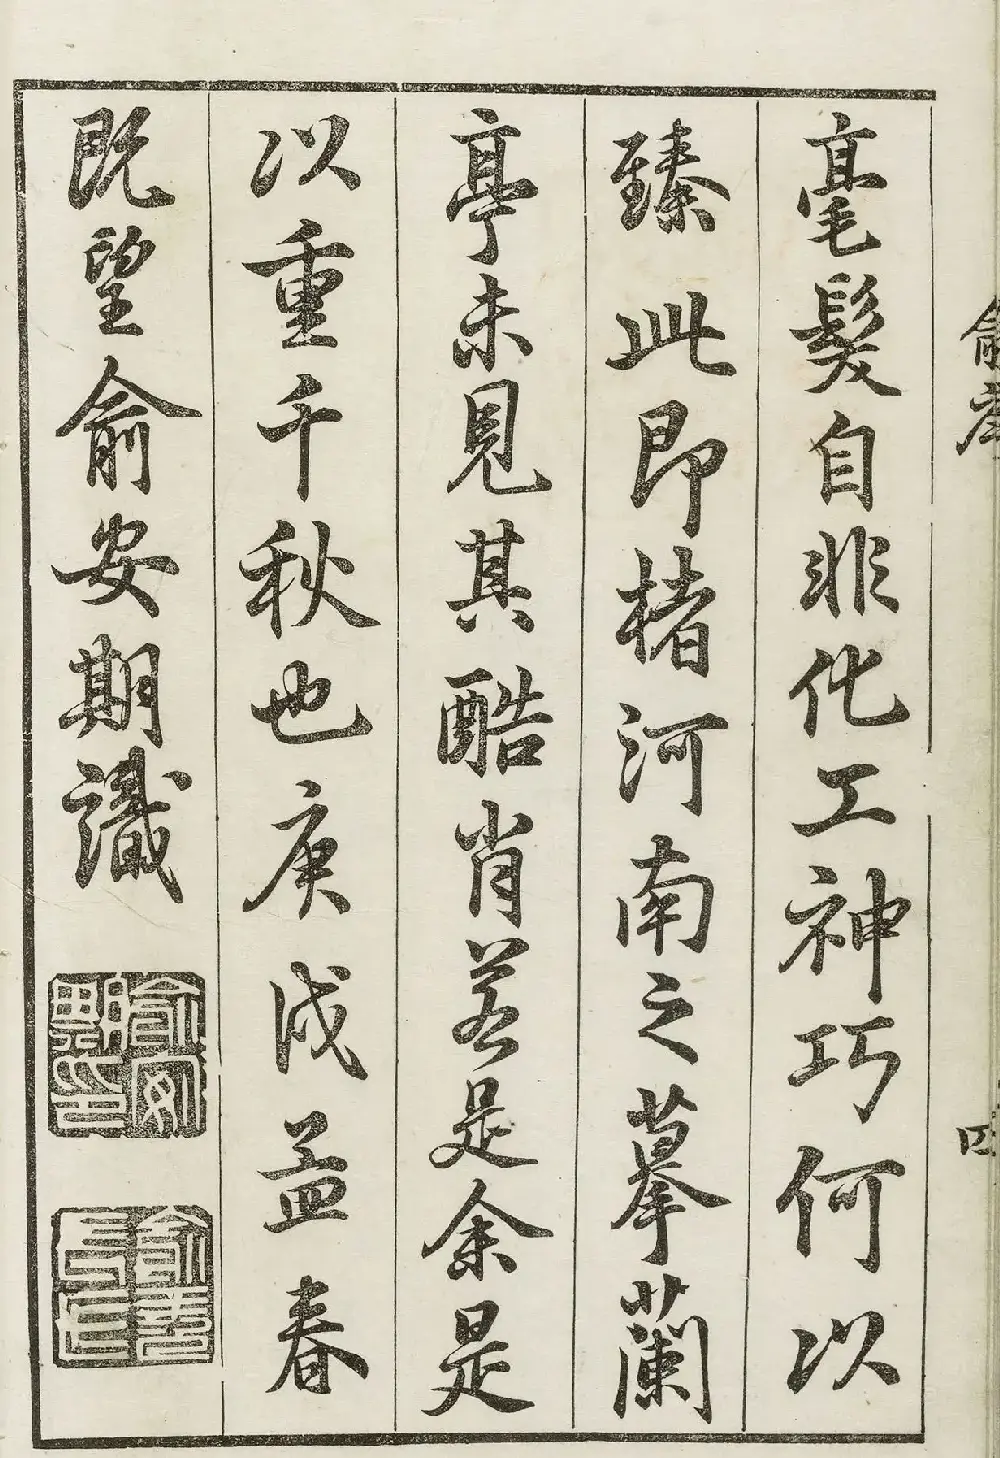 毫髮自非化工神巧何以
臻此即楮河南之摹蘭
亭未見其酷肖若是余是
以重千秋也庚戌孟春
既望俞安期識
俞序
四